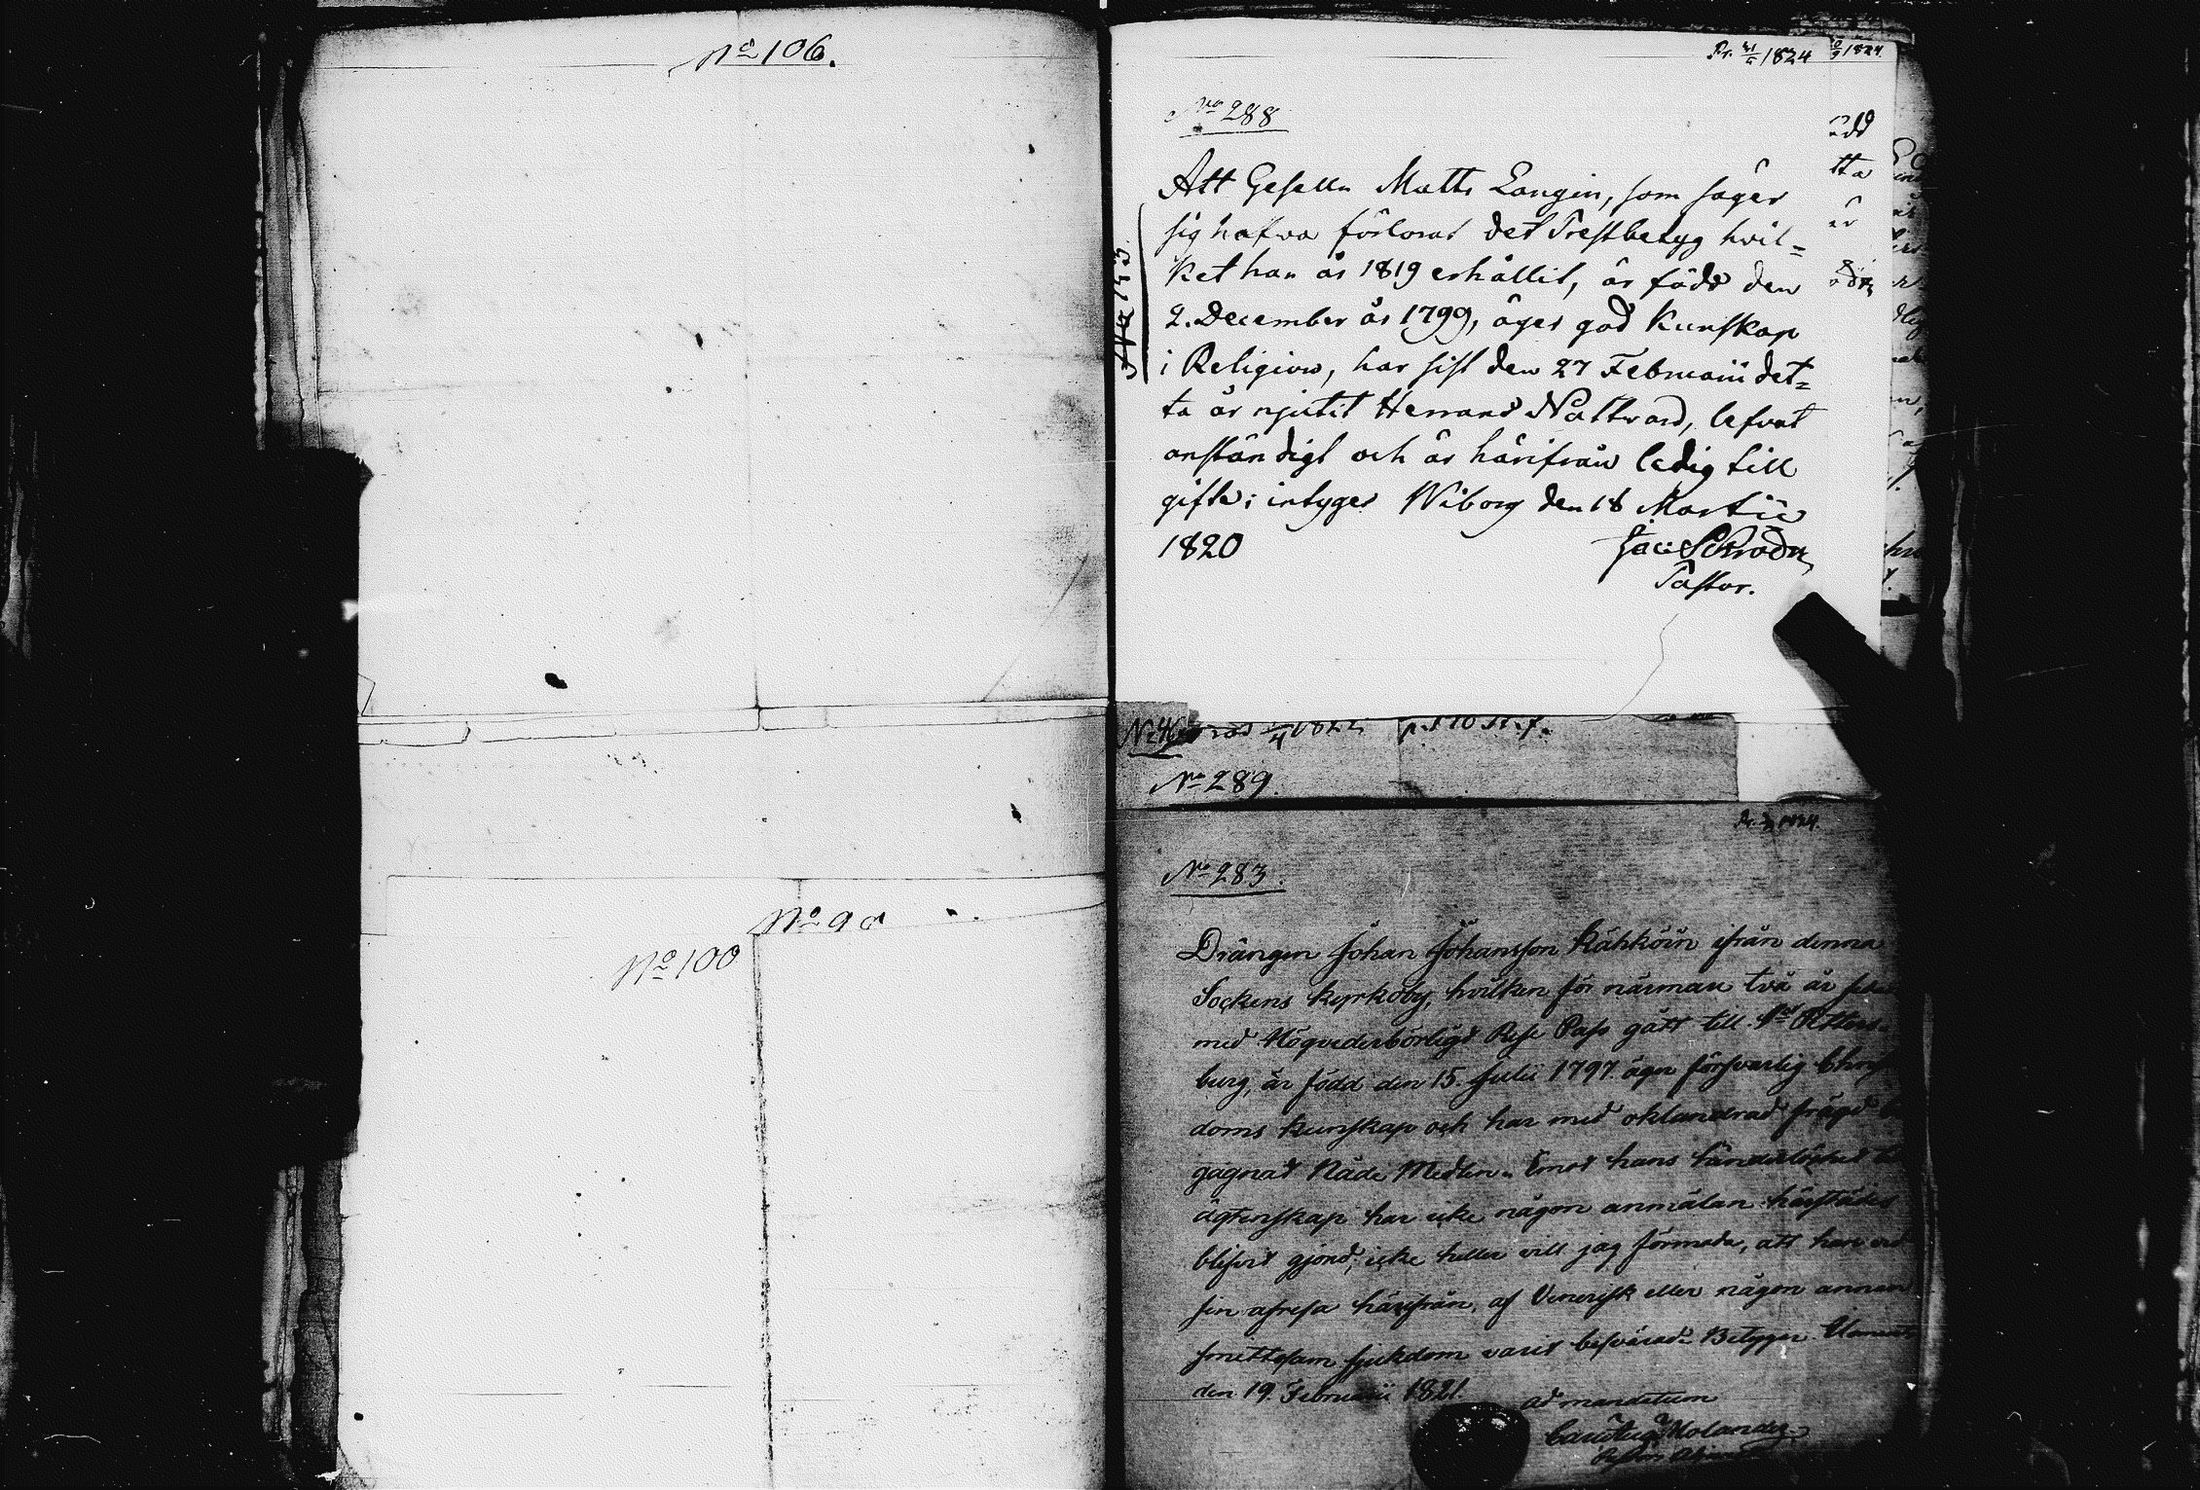 No 106.
No 98
No 100
Pr. 21/5 1824
9 1824.
No 288
Att Gesellen Matts Langin, som säger
sig hafva förlorat det Prestbetyg hvil=
ket han år 1819 erhållit, är född den
2. December år 1799, äger god Kunskap
i Religion, har sist den 27 Februarii det=
ta år njutit Herrans Nattvard, lefvat
anständigt och är härifrån ledig till
gifte; intygar Wiborg den 18 Martii
1820
Jac: Schroder
Pastor.
ödd
tta
är
No 289.
Pr. 1824.
No 283.
Drängen Johan Johansson Kähköin ifrån denna
Sockens kyrkoby, hvilken för närmare två år
med Högvederbörligt Rese Pass gått till St Petters-
burg, är född den 15. Julii 1797. äger försvarlig Chris
doms kunskap och har med oklandrad frägd
gagnat Nåde Medlen. Emot hans hinderlöshet
ägtenskap har icke någon anmälan härstädes
blifvit gjord; icke heller vill jag förmoda, att han vid
sin afresa härifrån, af Venerisk eller någon annan
smittosam sjukdom varit besvärad. Betygar
den 19. Februarii 1821.
ad mandatum
Molander